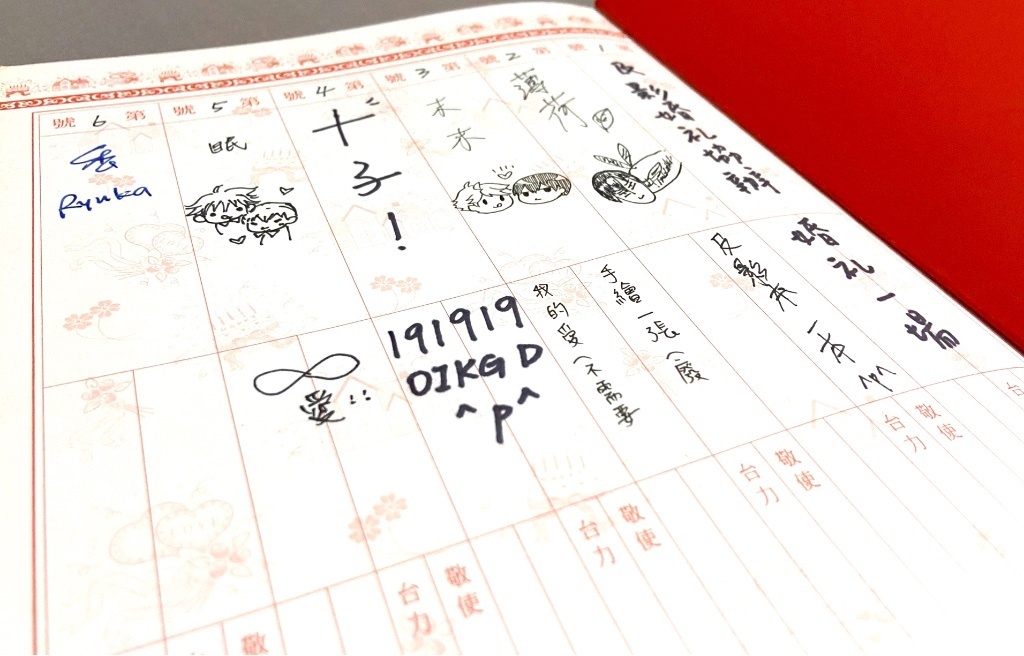 第 1 號
影婚礼協辦
婚礼一場
第 2 號
薄荷
及影本 一本 ^p^
第 3 號
木木
手繪一張(廢
我的愛(不需要
第 4 號
十子!
191919
OIKGD
^p^
第 5 號
眠
∞
愛
第 6 號
Ryuka
敬使
台力
敬使
台力
敬使
台力
敬使
台力
敬
台